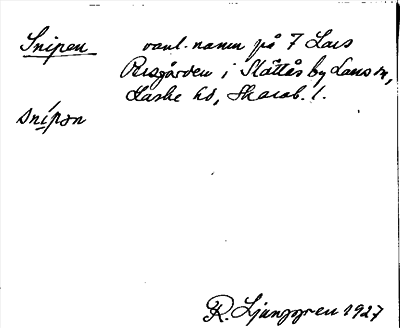 Snipen vanl. namn på 7 Lars
Persgården i Slättås by Lars sn,
Laske hd, Skarab. l.
snipən
R. Ljunggren 1927